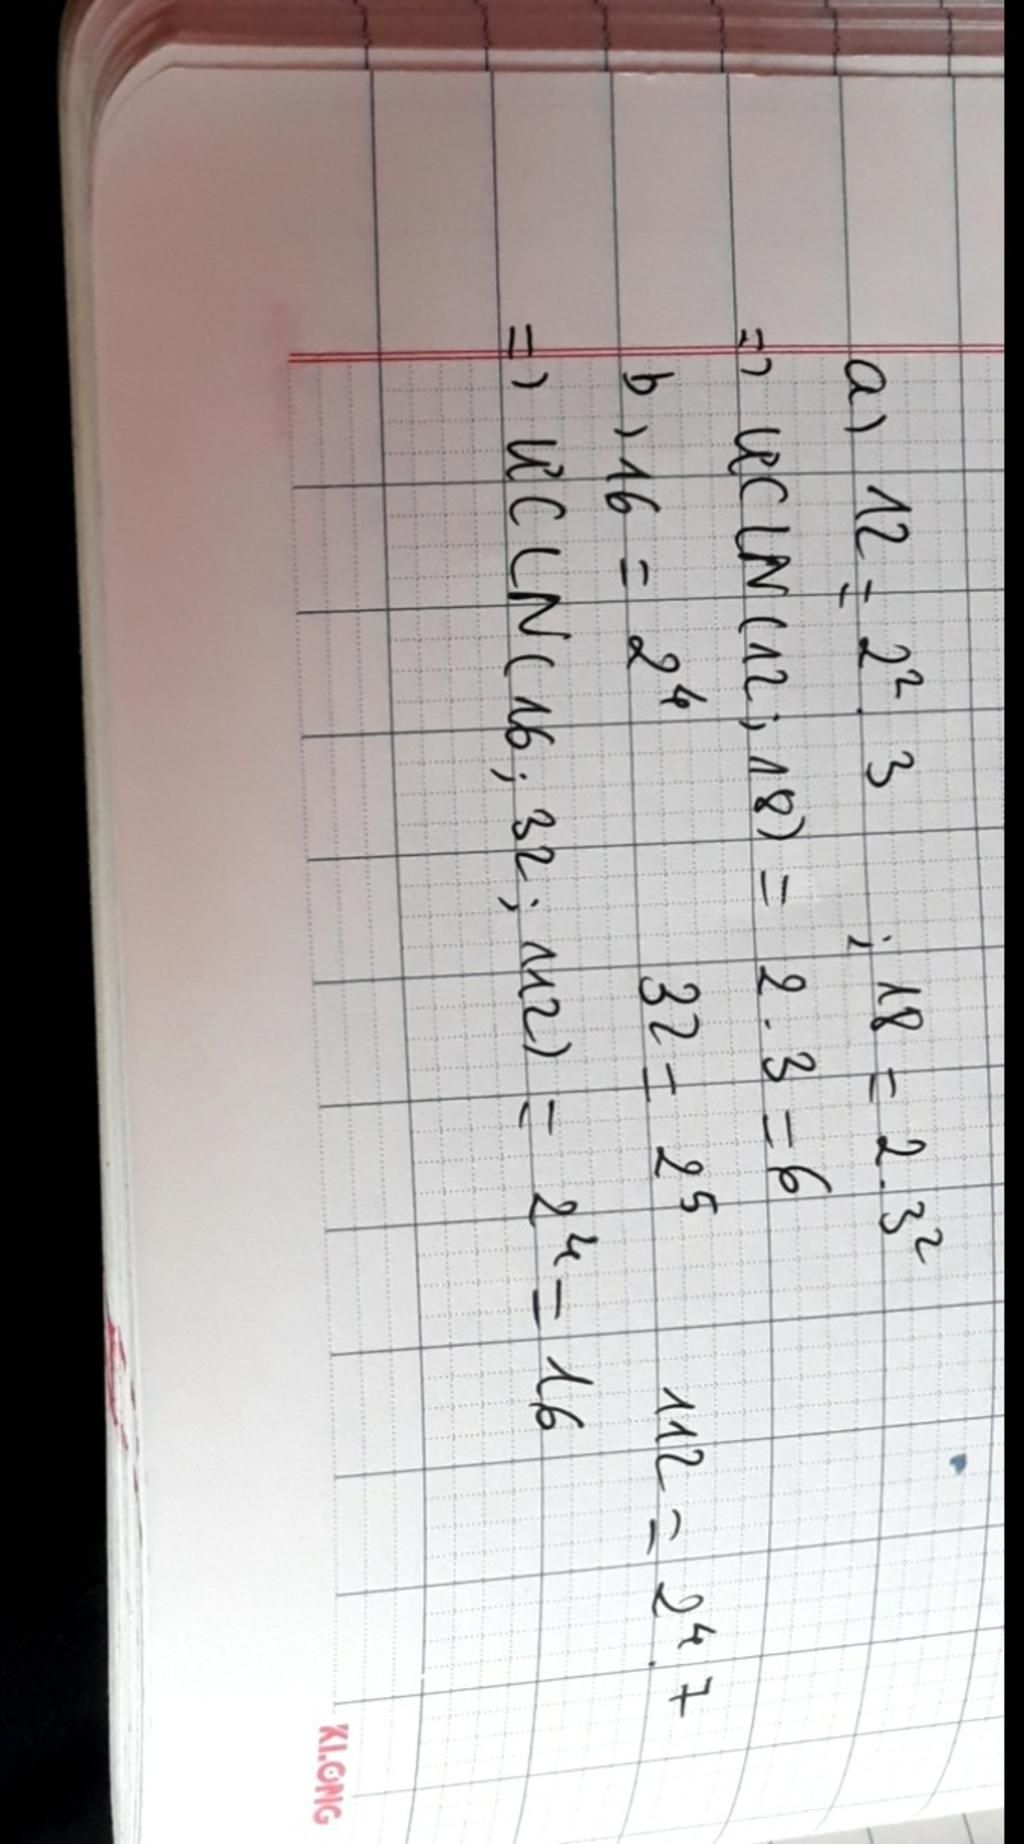 a) 12 = 2². 3 ; 18 = 2.3²
=> ƯCLN(12; 18) = 2.3 = 6
b, 16 = 2⁴ 32 = 2⁵ 112 = 2⁴.7
=> ƯCLN(16; 32; 112) = 2⁴ = 16
KLONG